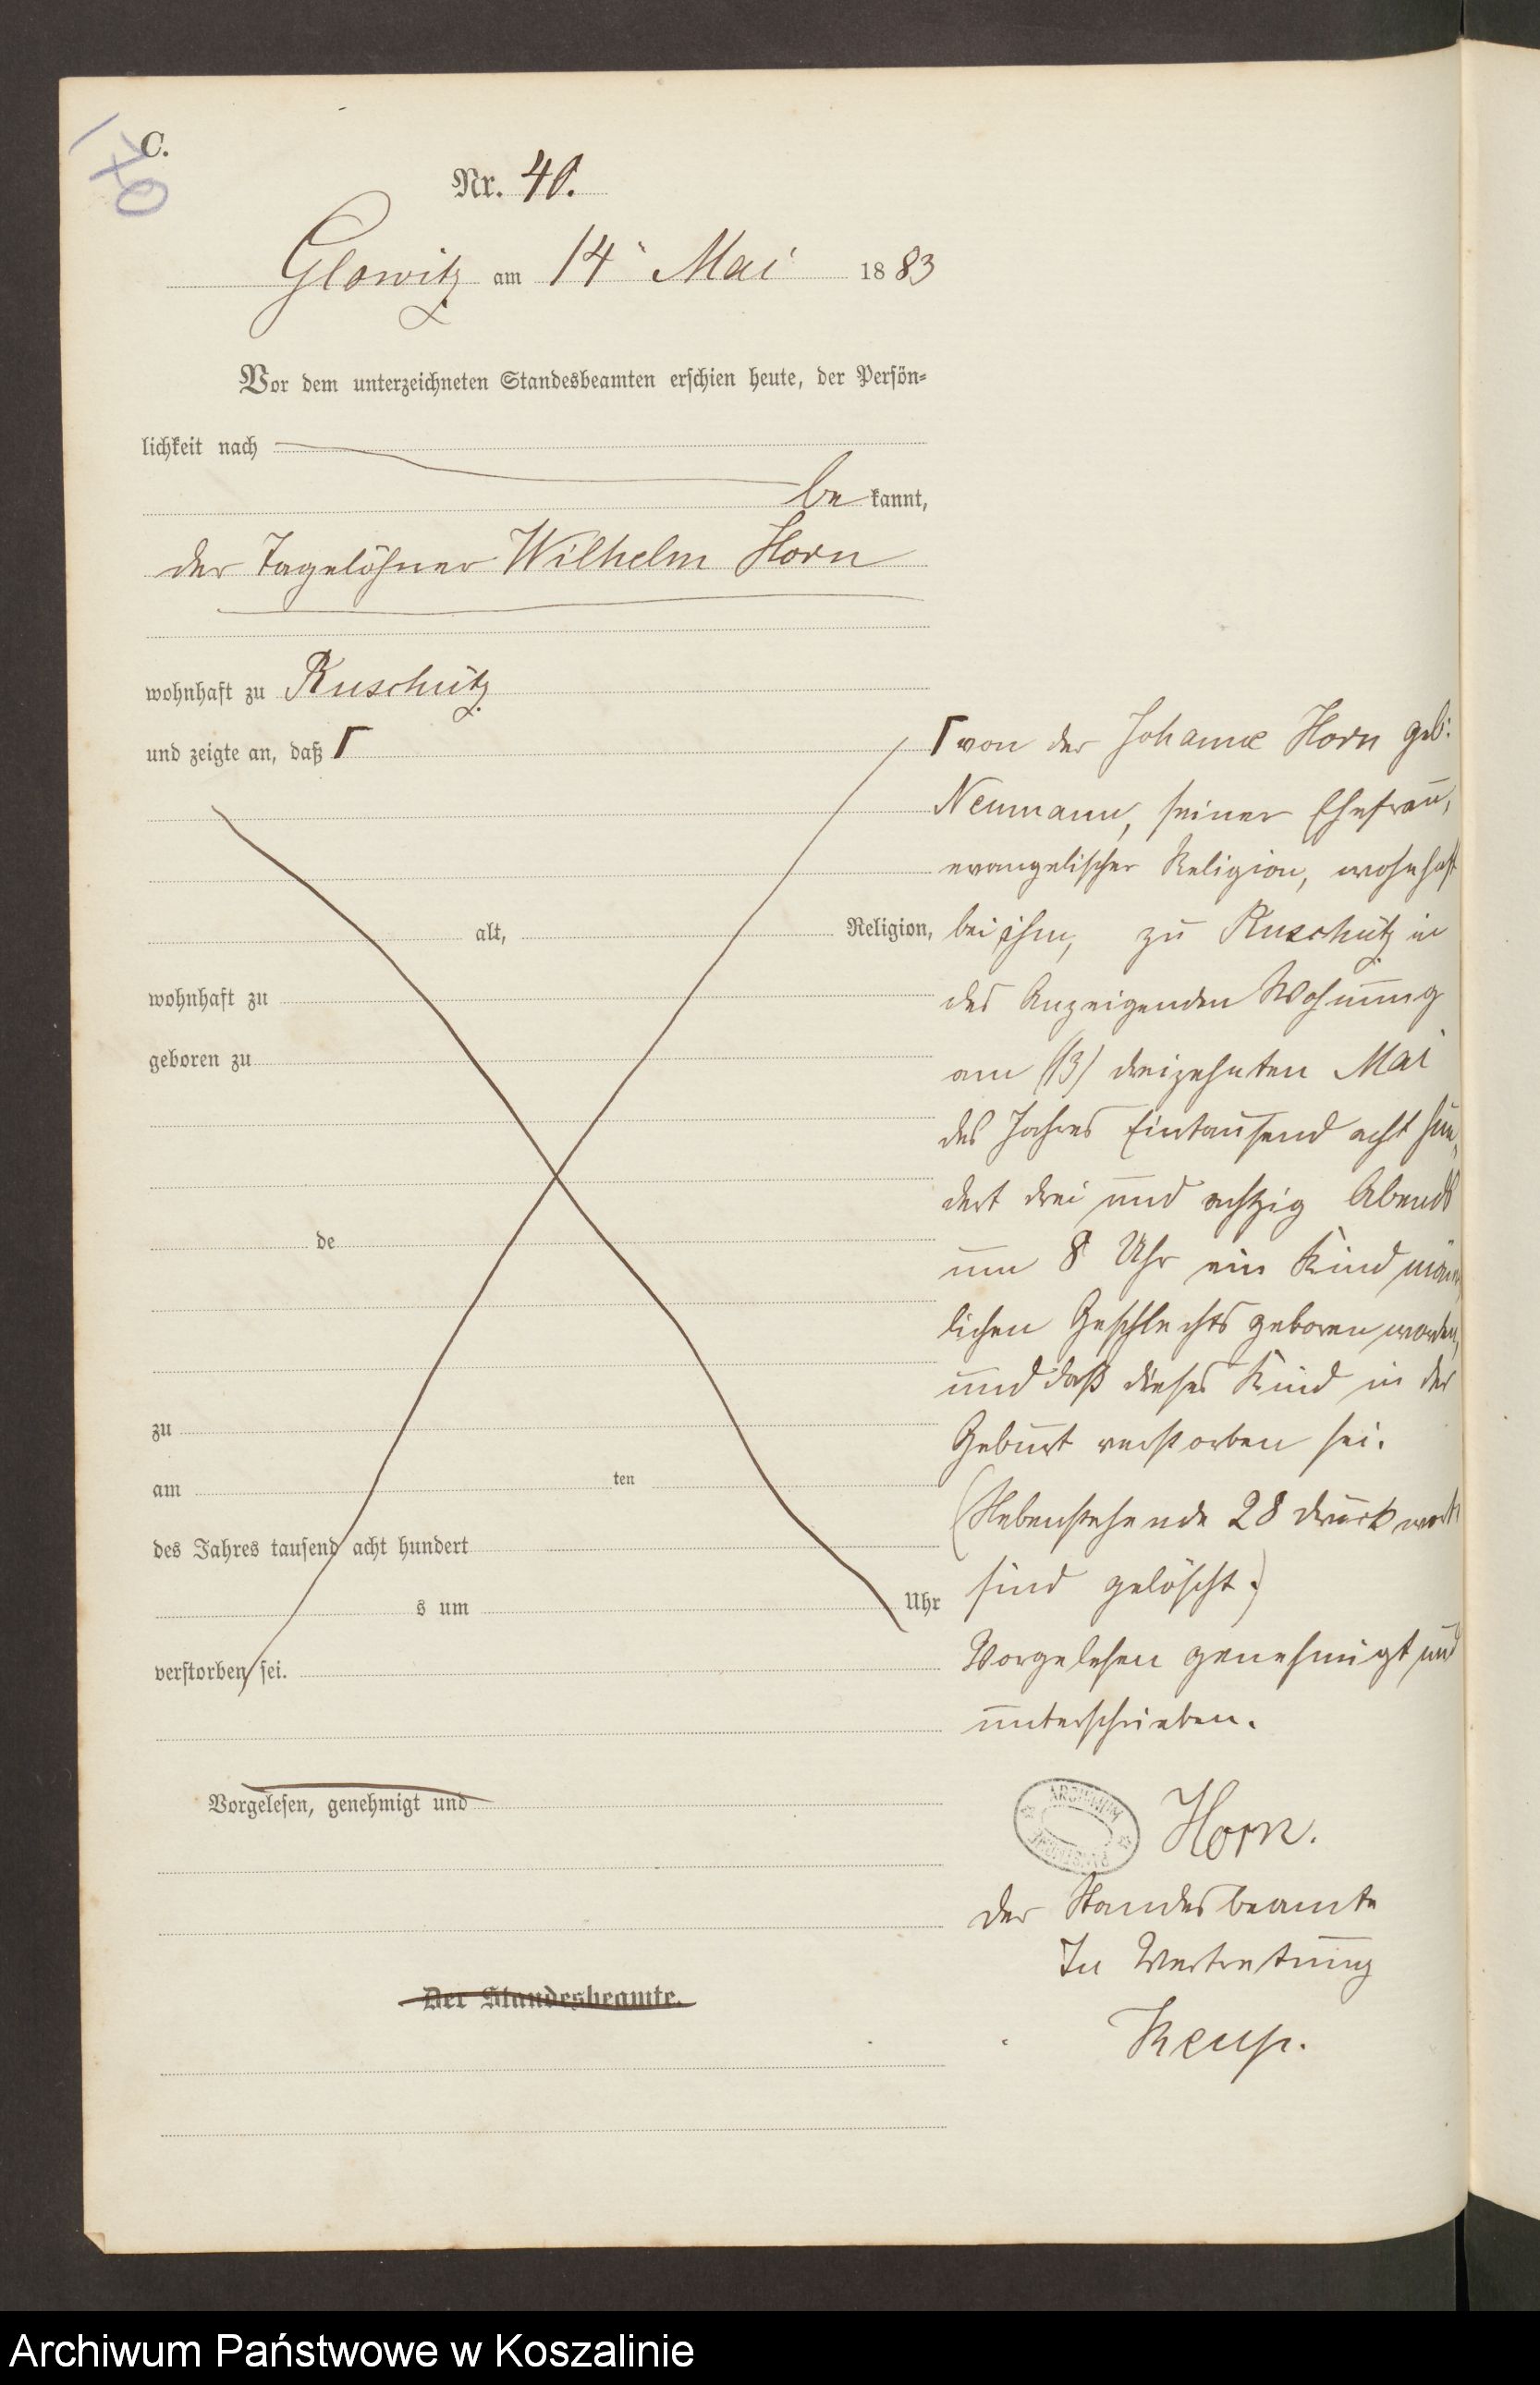 170
C.
Nr. 40.
Glowitz am 14 Mai 1883
Vor dem unterzeichneten Standesbeamten erschien heute, der Persön-
lichkeit nach
be kannt,
der Tagelöhner Wilhelm Horn
wohnhaft zu Ruschütz
und zeigte an, daß Γ
alt, Religion,
wohnhaft zu
geboren zu
de
zu
am ten
des Jahres tausend acht hundert
s um Uhr
verstorben sei.
Vorgelesen, genehmigt und
Der Standesbeamte.
Γ von der Johanne Horn geb:
Neumann, seiner Ehefrau,
evangelischer Religion, wohnhaft
bei ihm, zu Ruschütz in
des Anzeigenden Wohnung
am (13) dreizehnten Mai
des Jahres Eintausend acht hun-
dert drei und achtzig Abends
um 8 Uhr ein Kind männ-
lichen Geschlechts geboren worden,
und daß dieses Kind in der
Geburt verstorben sei.
(Nebenstehende 28 Druckworte
sind gelöscht.)
Vorgelesen genehmigt und
unterschrieben.
ARCHIWUM
Horn.
Der Standesbeamte
In Vertretung
Archiwum Państwowe w Koszalinie